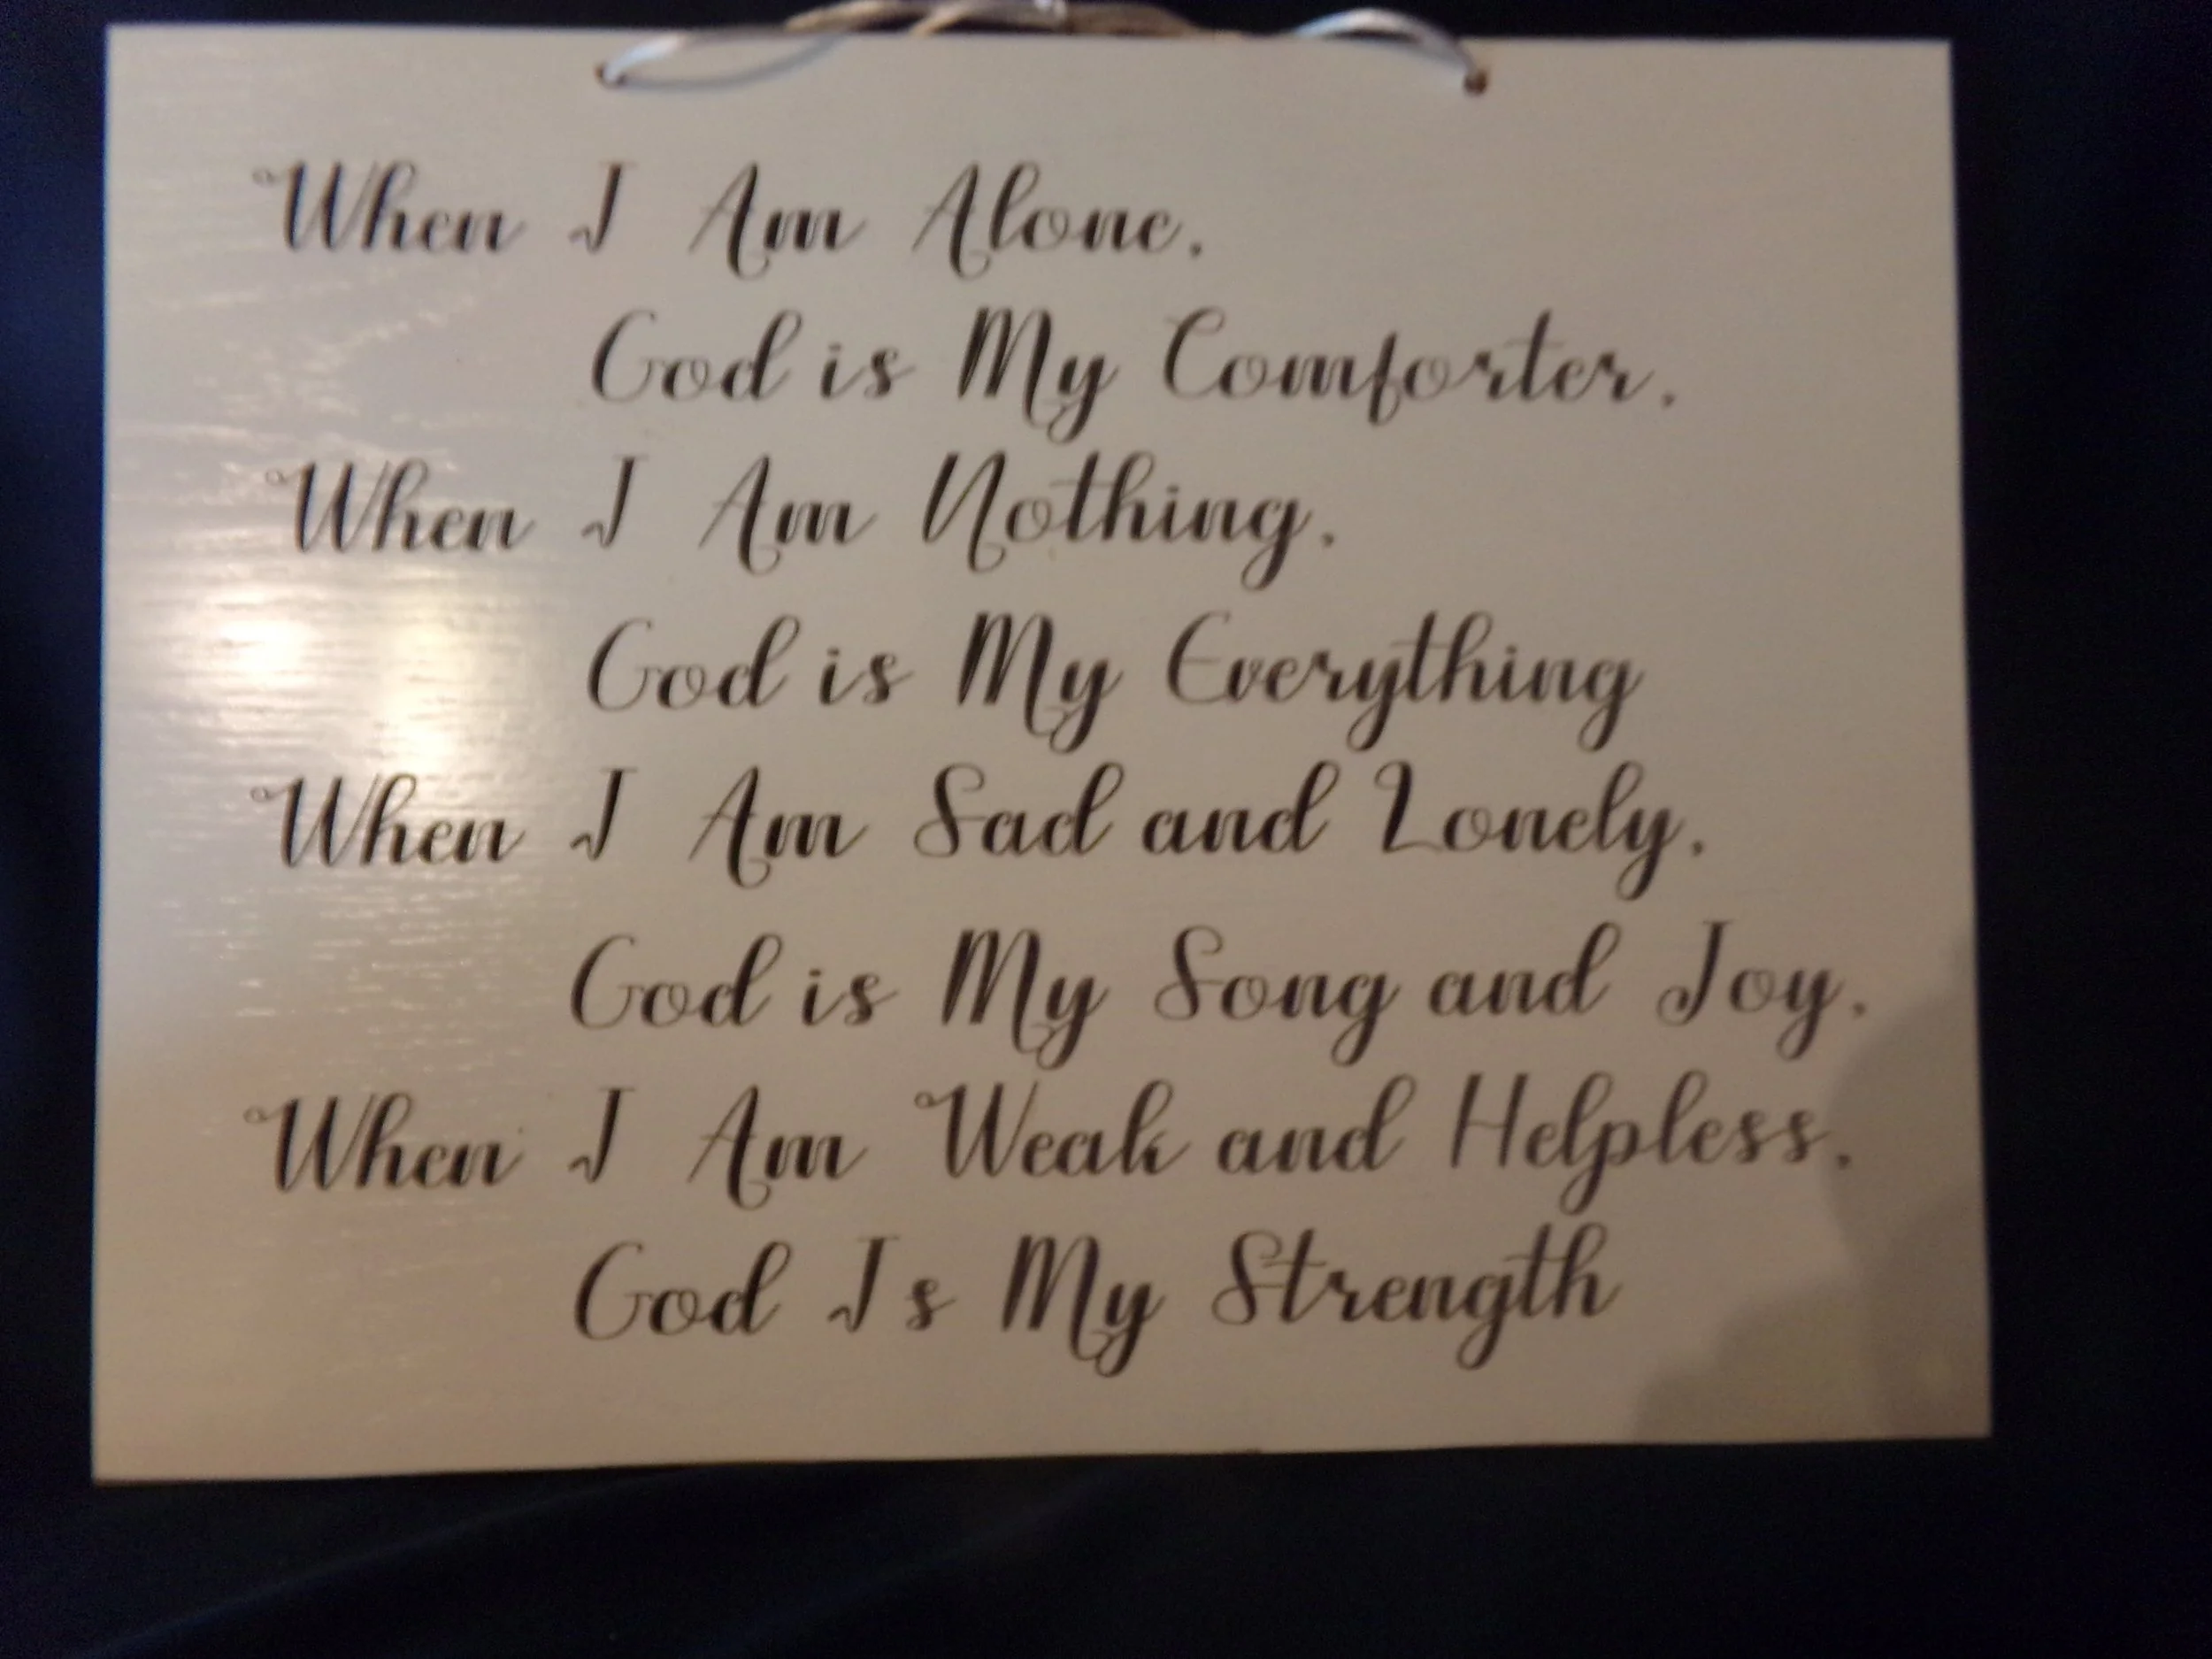 When I Am Alone.
God is My Comforter.
When I Am Nothing.
God is My Everything
When I Am Sad and Lonely.
God is My Song and Joy.
When I Am Weak and Helpless.
God Is My Strength